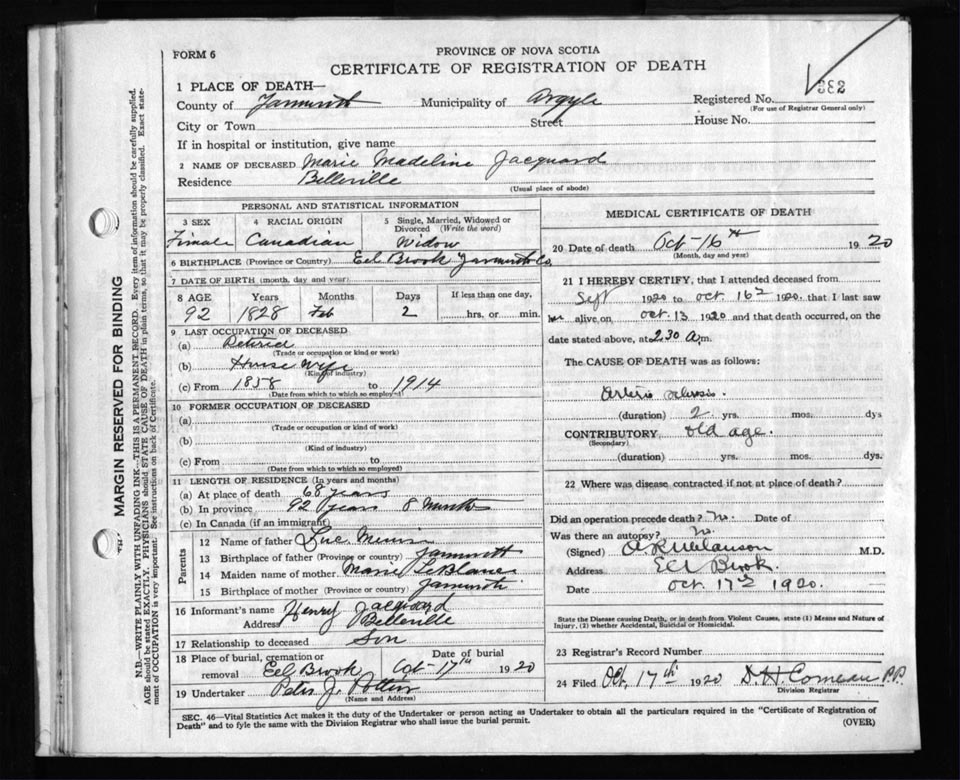 FORM 6
PROVINCE OF NOVA SCOTIA
CERTIFICATE OF REGISTRATION OF DEATH
382
1 PLACE OF DEATH—
County of Yarmouth Municipality of Argyle Registered No.
(For use of Registrar General only)
City or Town Street House No.
If in hospital or institution, give name
2 NAME OF DECEASED Marie Madeline Jacquard
Residence Belleville
(Usual place of abode)
PERSONAL AND STATISTICAL INFORMATION
3 SEX 4 RACIAL ORIGIN 5 Single, Married, Widowed or Divorced (Write the word)
Female Canadian Widow
6 BIRTHPLACE (Province or Country) Eel Brook Yarmouth Co.
7 DATE OF BIRTH (month, day and year)
8 AGE Years Months Days If less than one day,
92 1828 Feb 2 hrs. or min.
9 LAST OCCUPATION OF DECEASED
(a) Retired
(Trade or occupation or kind or work)
(b) House wife
(Kind of industry)
(c) From 1858 to 1914
(Date from which to which so employed)
10 FORMER OCCUPATION OF DECEASED
(a)
(Trade or occupation or kind of work)
(b)
(Kind of industry)
(c) From to
(Date from which to which so employed)
11 LENGTH OF RESIDENCE (In years and months)
(a) At place of death 68 years
(b) In province 92 years 8 months
(c) In Canada (if an immigrant)
Parents
12 Name of father Luc
13 Birthplace of father (Province or country) Yarmouth
14 Maiden name of mother Marie LeBlanc
15 Birthplace of mother (Province or country) Yarmouth
16 Informant's name Henry Jacquard
Address Belleville
17 Relationship to deceased Son
18 Place of burial, cremation or removal Eel Brook Date of burial Oct-17th 1920
19 Undertaker Peter J. Pottier
(Name and Address)
MEDICAL CERTIFICATE OF DEATH
20 Date of death Oct-16th 1920
(Month, day and year)
21 I HEREBY CERTIFY, that I attended deceased from
Sept 1920 to Oct. 16th 1920. that I last saw
her alive, on Oct. 13 1920 and that death occurred, on the
date stated above, at 2.30 a.m.
The CAUSE OF DEATH was as follows:
Arterio sclerosis.
(duration) 2 yrs. mos. dys
CONTRIBUTORY old age.
(Secondary)
(duration) yrs. mos. dys.
22 Where was disease contracted if not at place of death?
Did an operation precede death? No. Date of
Was there an autopsy? No.
(Signed) M.D.
Address Eel Brook.
Date Oct. 17th 1920.
State the Disease causing Death, or in death from Violent Causes, state (1) Means and Nature of
Injury, (2) whether Accidental, Suicidal or Homicidal.
23 Registrar's Record Number
24 Filed Oct. 17th 1920 D. H. Comeau P.P.
Division Registrar
SEC. 46—Vital Statistics Act makes it the duty of the Undertaker or person acting as Undertaker to obtain all the particulars required in the "Certificate of Registration of
Death" and to fyle the same with the Division Registrar who shall issue the burial permit.
(OVER)
MARGIN RESERVED FOR BINDING
N.B.—WRITE PLAINLY WITH UNFADING INK—THIS IS A PERMANENT RECORD. Every item of information should be carefully supplied.
AGE should be stated EXACTLY. PHYSICIANS should STATE CAUSE OF DEATH in plain terms, so that it may be properly classified. Exact state-
ment of OCCUPATION is very important. See instructions on back of Certificate.